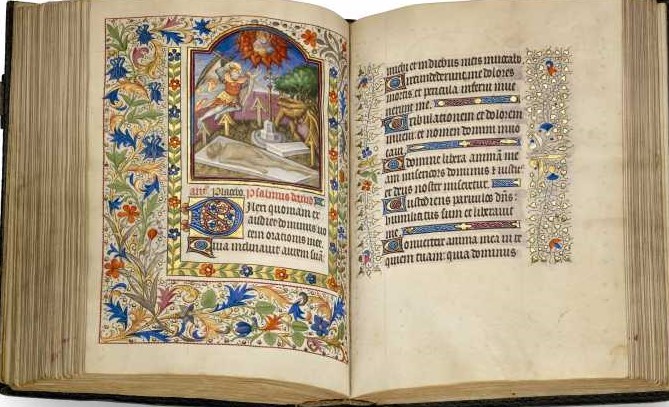 ant̄ Placebo. psalmus david
Dilexi quoniam ex
audiet dominus uo
cem orationis mee.
Quia inclinauit aurem suā
michi et in diebus meis inuocabo
Circundederunt me dolores
mortis et pericula inferni inue
nerunt me.
Tribulationem et dolorem
inueni et nomen domini inuo
caui.
O domine libera animā me
am misericors dominus et iustus
et deus noster miseretur.
Custodiens paruulos dn̄s:
humiliatus sum et liberauit
me.
Conuertere anima mea in re
quiem tuam: quia dominus